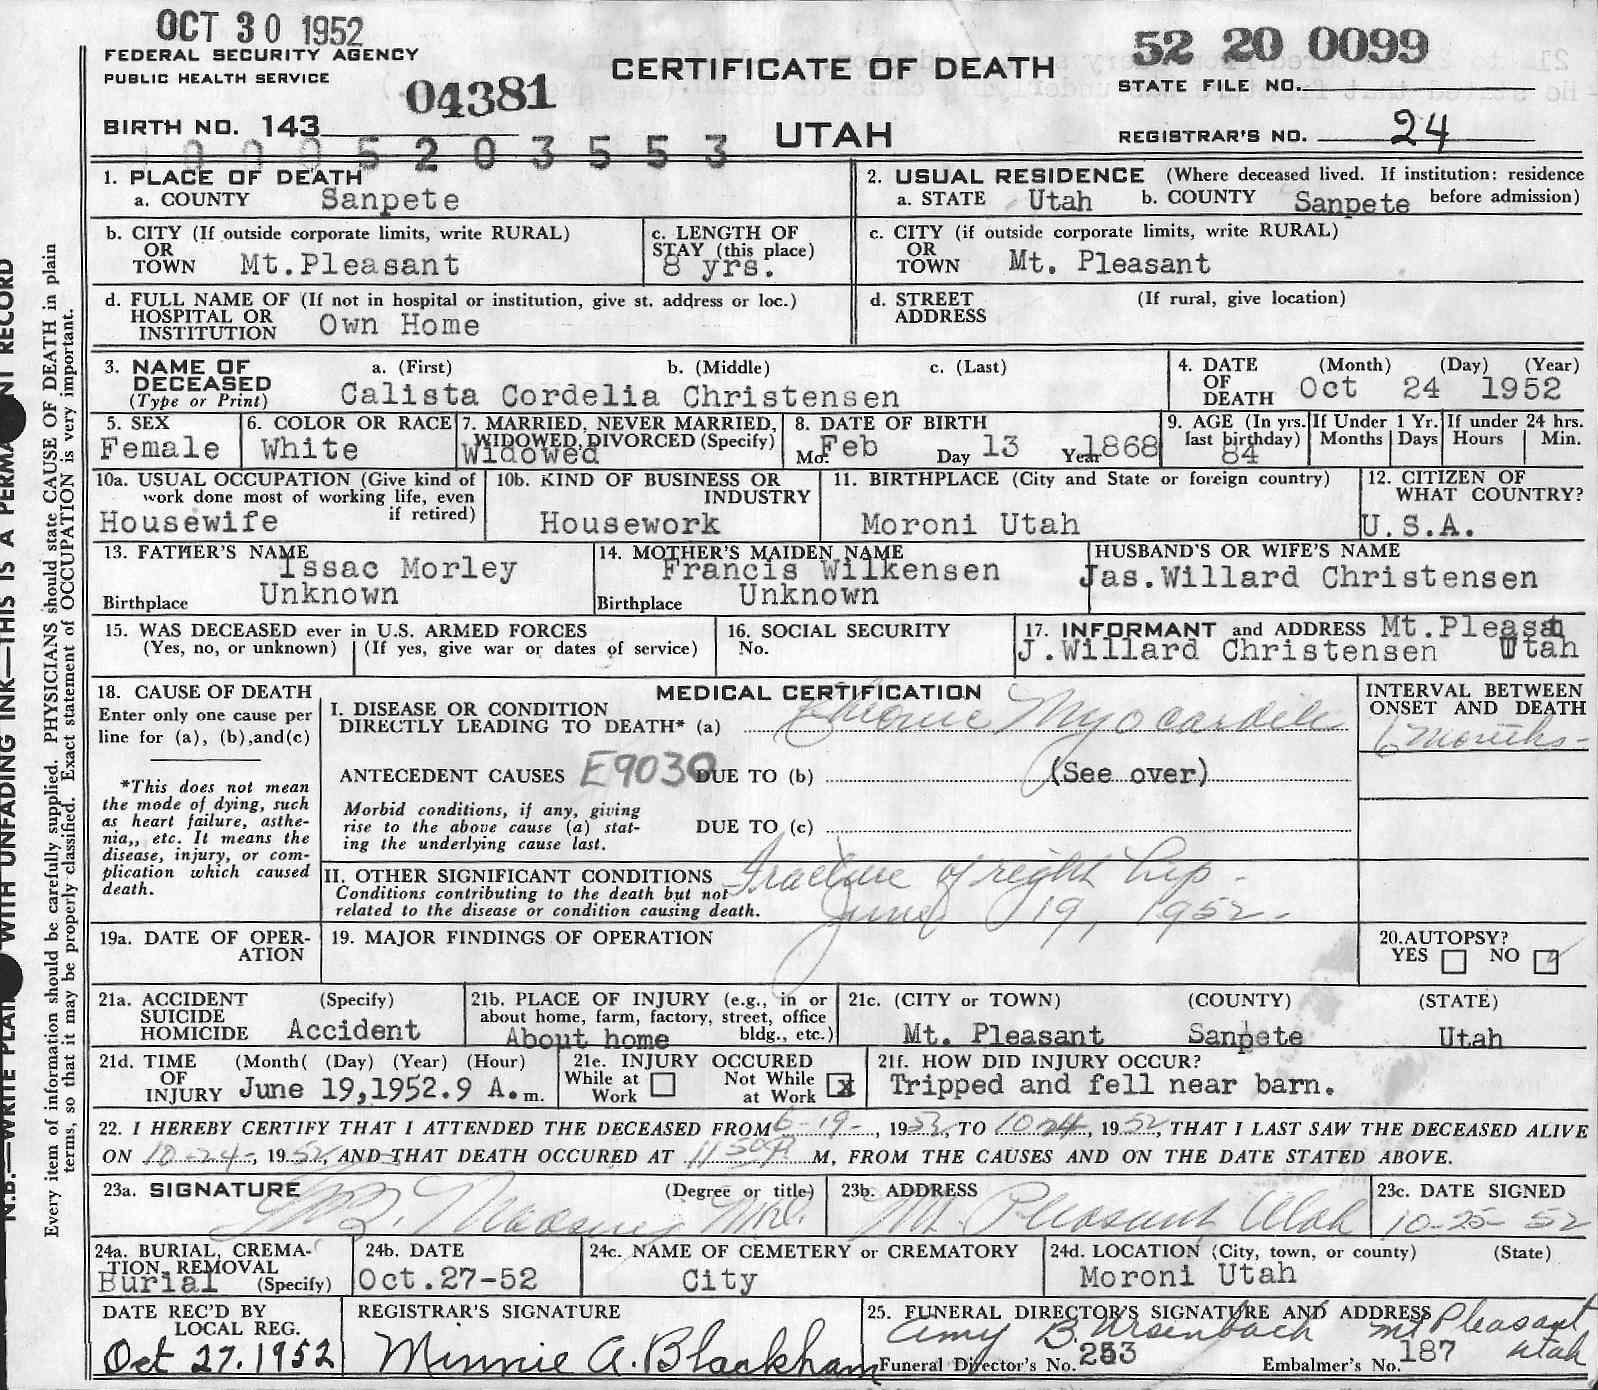 OCT 30 1952
FEDERAL SECURITY AGENCY
PUBLIC HEALTH SERVICE
04381
BIRTH NO. 143
0005203553
CERTIFICATE OF DEATH
UTAH
52 20 0099
STATE FILE NO.
REGISTRAR'S NO. 24
1. PLACE OF DEATH
a. COUNTY Sanpete
2. USUAL RESIDENCE (Where deceased lived. If institution: residence
a. STATE Utah b. COUNTY Sanpete before admission)
b. CITY (If outside corporate limits, write RURAL)
OR
TOWN Mt.Pleasant
c. LENGTH OF
STAY (this place)
8 yrs.
c. CITY (if outside corporate limits, write RURAL)
OR
TOWN Mt. Pleasant
d. FULL NAME OF (If not in hospital or institution, give st. address or loc.)
HOSPITAL OR
INSTITUTION Own Home
d. STREET (If rural, give location)
ADDRESS
3. NAME OF a. (First) b. (Middle) c. (Last)
DECEASED
(Type or Print) Calista Cordelia Christensen
4. DATE (Month) (Day) (Year)
OF
DEATH Oct 24 1952
5. SEX
Female
6. COLOR OR RACE
White
7. MARRIED, NEVER MARRIED,
WIDOWED, DIVORCED (Specify)
Widowed
8. DATE OF BIRTH
Mo. Feb Day 13 Year 1868
9. AGE (In yrs.
last birthday)
84
If Under 1 Yr.
Months Days
If under 24 hrs.
Hours Min.
10a. USUAL OCCUPATION (Give kind of
work done most of working life, even
if retired)
Housewife
10b. KIND OF BUSINESS OR
INDUSTRY
Housework
11. BIRTHPLACE (City and State or foreign country)
Moroni Utah
12. CITIZEN OF
WHAT COUNTRY?
U.S.A.
13. FATHER'S NAME
Issac Morley
Birthplace Unknown
14. MOTHER'S MAIDEN NAME
Francis Wilkensen
Birthplace Unknown
HUSBAND'S OR WIFE'S NAME
Jas.Willard Christensen
15. WAS DECEASED ever in U.S. ARMED FORCES
(Yes, no, or unknown) (If yes, give war or dates of service)
16. SOCIAL SECURITY
No.
17. INFORMANT and ADDRESS Mt.Pleasat
J.Willard Christensen Utah
18. CAUSE OF DEATH
Enter only one cause per
line for (a), (b),and(c)
*This does not mean
the mode of dying, such
as heart failure, asthe-
nia,, etc. It means the
disease, injury, or com-
plication which caused
death.
MEDICAL CERTIFICATION
I. DISEASE OR CONDITION
DIRECTLY LEADING TO DEATH* (a) Chronic Myocardile
ANTECEDENT CAUSES E9030 DUE TO (b) (See over)
Morbid conditions, if any, giving
rise to the above cause (a) stat-
ing the underlying cause last.
DUE TO (c)
II. OTHER SIGNIFICANT CONDITIONS
Conditions contributing to the death but not
related to the disease or condition causing death.
Fracture of right hip -
June 19, 1952 -
INTERVAL BETWEEN
ONSET AND DEATH
6 months -
19a. DATE OF OPER-
ATION
19. MAJOR FINDINGS OF OPERATION
20.AUTOPSY?
YES NO
21a. ACCIDENT (Specify)
SUICIDE
HOMICIDE Accident
21b. PLACE OF INJURY (e.g., in or
about home, farm, factory, street, office
bldg., etc.)
About home
21c. (CITY or TOWN) (COUNTY) (STATE)
Mt. Pleasant Sanpete Utah
21d. TIME (Month( (Day) (Year) (Hour)
OF
INJURY June 19,1952.9 A.m.
21e. INJURY OCCURED
While at Work
Not While at Work x
21f. HOW DID INJURY OCCUR?
Tripped and fell near barn.
22. I HEREBY CERTIFY THAT I ATTENDED THE DECEASED FROM 6-19-, 1952, TO 10-24, 1952, THAT I LAST SAW THE DECEASED ALIVE
ON 10-24-, 1952, AND THAT DEATH OCCURED AT 11 50 P M, FROM THE CAUSES AND ON THE DATE STATED ABOVE.
23a. SIGNATURE (Degree or title)
23b. ADDRESS
Mt. Pleasant, Utah
23c. DATE SIGNED
10-25-52
24a. BURIAL, CREMA-
TION, REMOVAL
Burial (Specify)
24b. DATE
Oct.27-52
24c. NAME OF CEMETERY or CREMATORY
City
24d. LOCATION (City, town, or county) (State)
Moroni Utah
DATE REC'D BY
LOCAL REG.
Oct 27.1952
REGISTRAR'S SIGNATURE
Minnie A. Blackham
25. FUNERAL DIRECTOR'S SIGNATURE AND ADDRESS
Amy B. Ursenbach Mt Pleasant
Utah
Funeral Director's No. 253 Embalmer's No. 187
WITH UNFADING INK—THIS IS A PERMA
NT RECORD
N.B.—WRITE PLAI
Every item of information should be carefully supplied. PHYSICIANS should state CAUSE OF DEATH in plain
terms, so that it may be properly classified. Exact statement of OCCUPATION is very important.